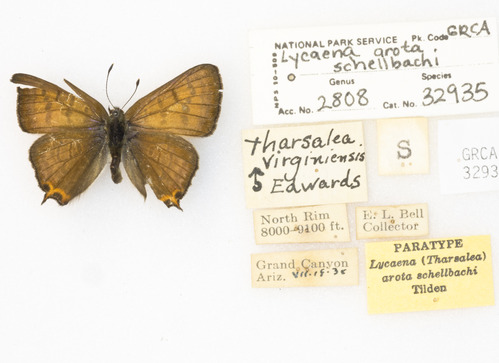 NATIONAL PARK SERVICE Pk. Code GRCA
Lycaena arota
schellbachi
Genus Species
Acc. No. 2808 Cat. No. 32935
Tharsalea
Virginiensis
♀ Edwards
S
GRCA
3293
North Rim
8000-9100 ft.
E. L. Bell
Collector
Grand Canyon
Ariz. VII-19-35
PARATYPE
Lycaena (Tharsalea)
arota schellbachi
Tilden